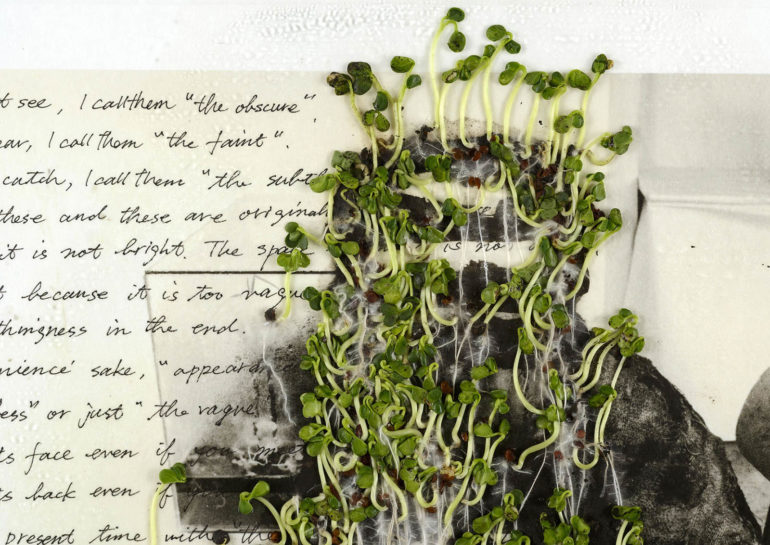 t see, I call them "the obscure"
ear, I call them "the faint".
catch, I call them "the subtl
these and these are original
it is not bright. The spa is no
t because it is too vague
thingness in the end.
nience' sake, "appeard
ess" or just "the vague
ts face even if you
ts back even if
present time with "the